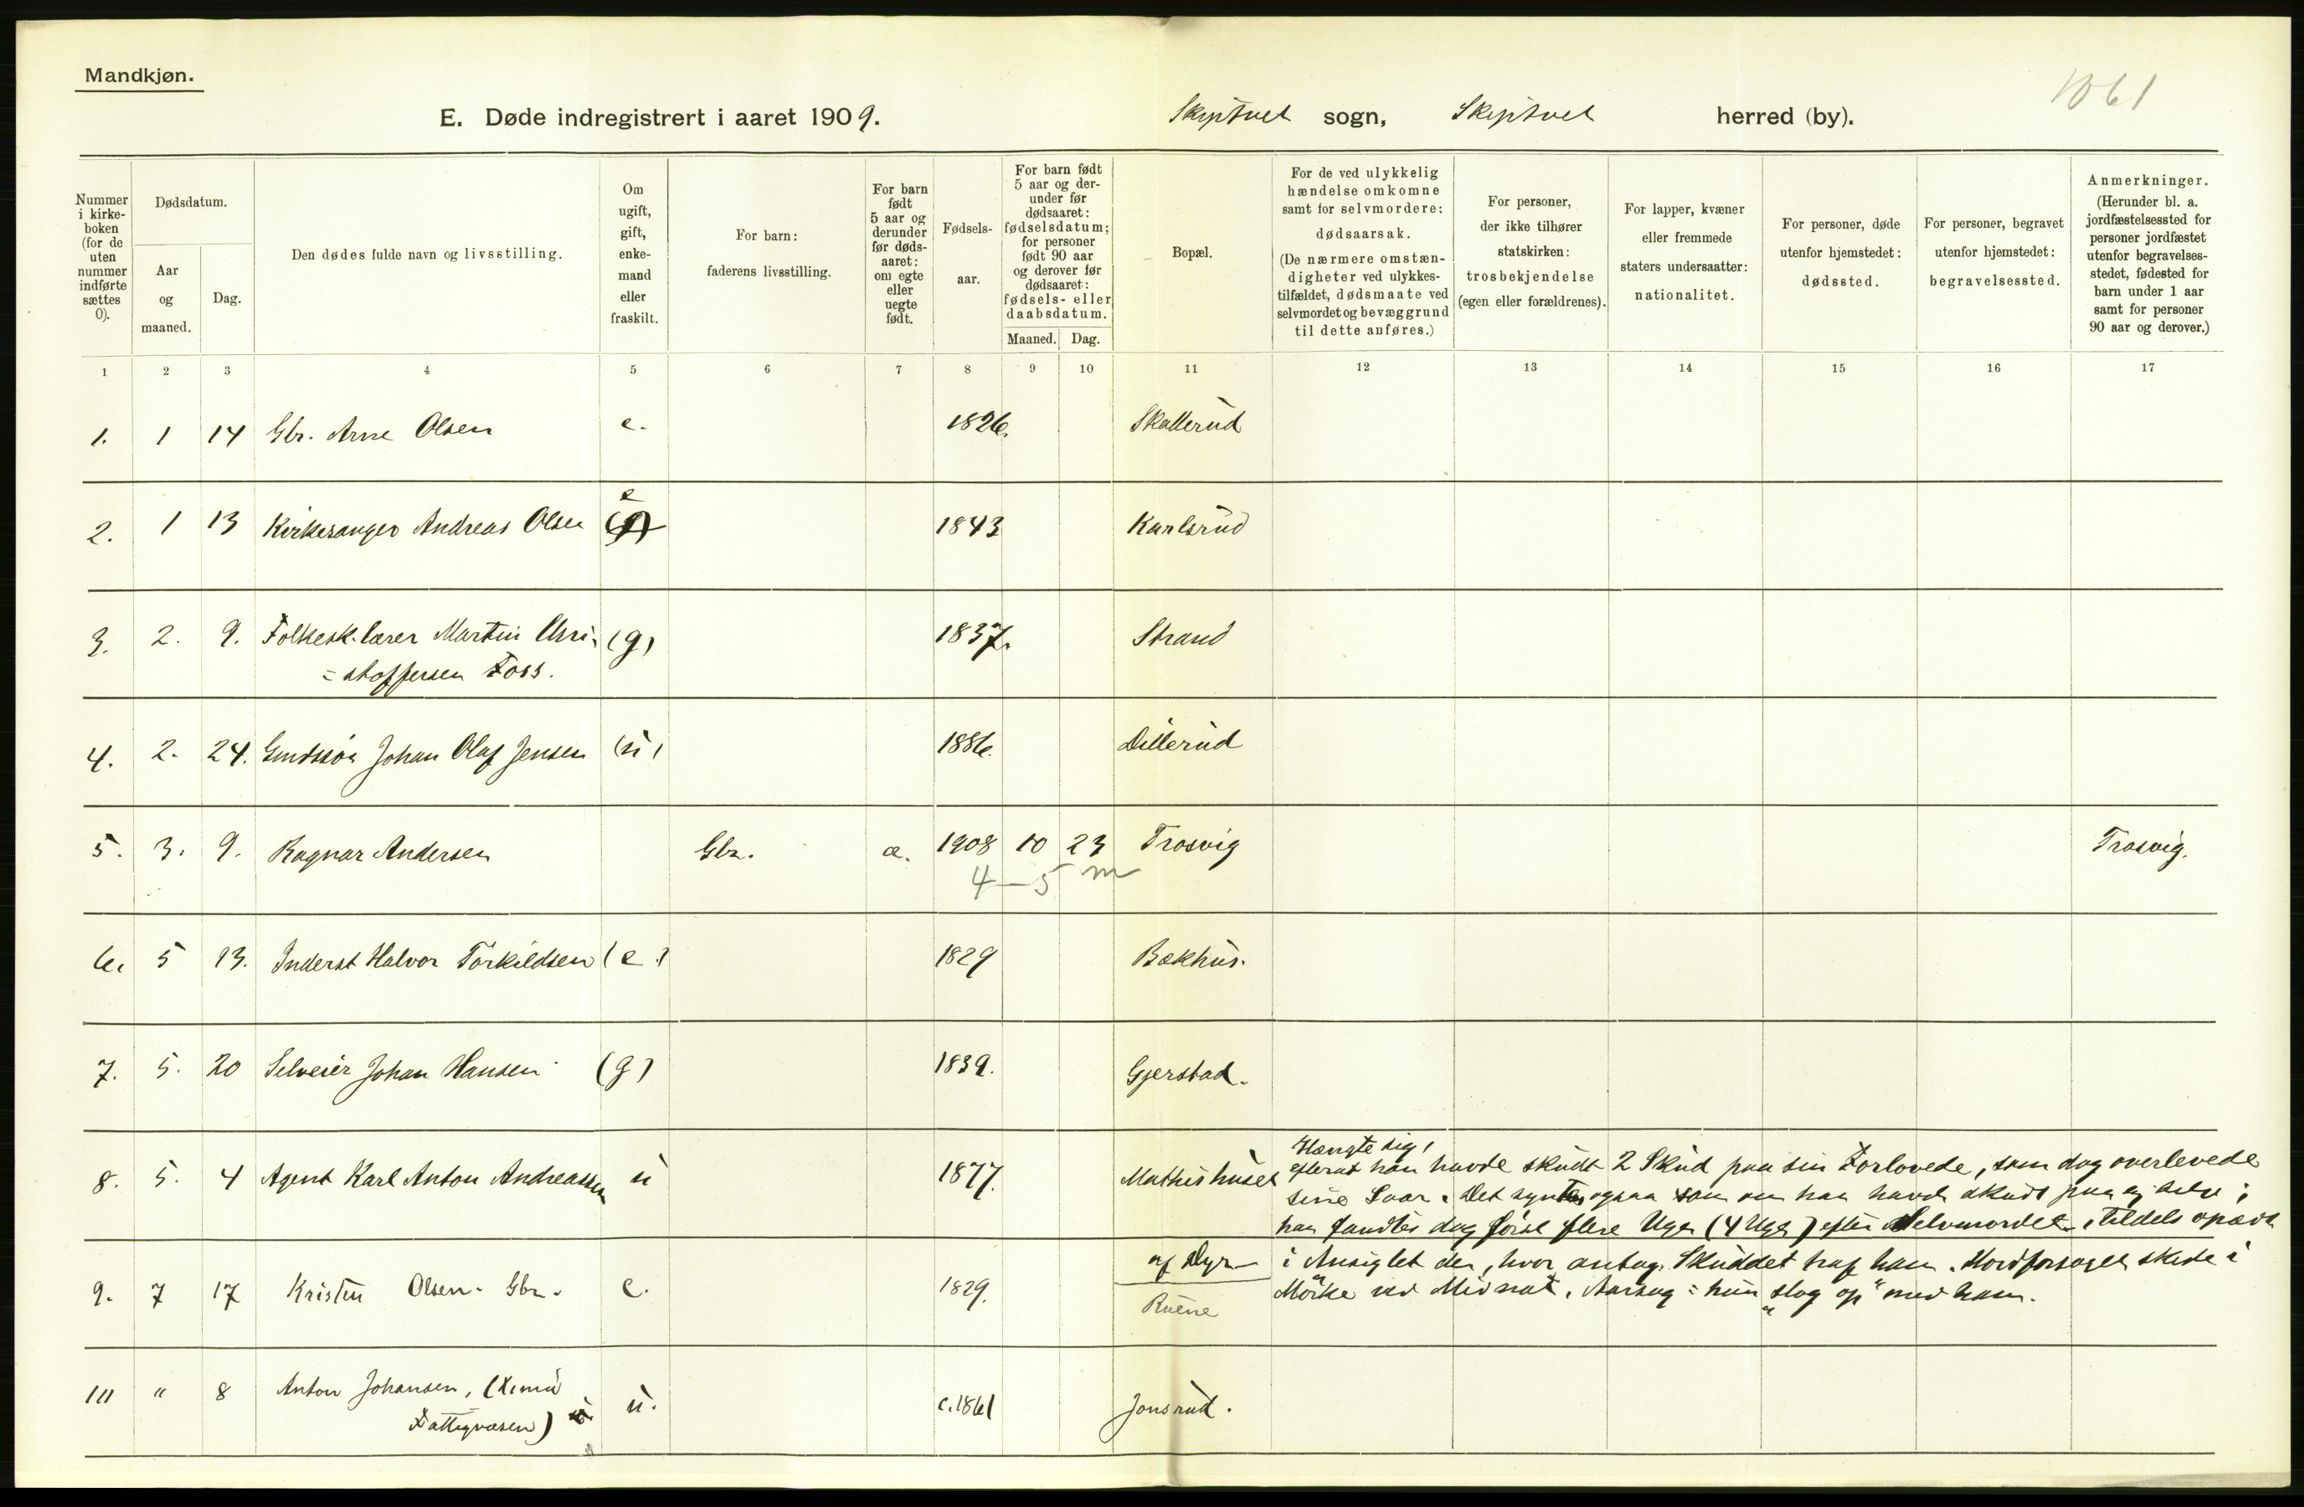 Mandkjøn.
1061
E. Døde indregistrert i aaret 1909.
Skiptvet sogn, Skiptvet herred (by).
Nummer i kirke-boken (for de uten nummer indførte sættes 0).
Dødsdatum.
Aar og maaned.
Dag.
Den dødes fulde navn og livsstilling.
Om ugift, gift, enke-mand eller fraskilt.
For barn: faderens livsstilling.
For barn født 5 aar og derunder før døds-aaret: om egte eller uegte født.
Fødsels-aar.
For barn født 5 aar og der-under før dødsaaret: fødselsdatum; for personer født 90 aar og derover før dødsaaret: fødsels- eller daabsdatum.
Maaned. Dag.
Bopæl.
For de ved ulykkelig hændelse omkomne samt for selvmordere: dødsaarsak. (De nærmere omstæn-digheter ved ulykkes-tilfældet, dødsmaate ved selvmordet og bevæggrund til dette anføres.)
For personer, der ikke tilhører statskirken: trosbekjendelse (egen eller forældrenes).
For lapper, kvæner eller fremmede staters undersaatter: nationalitet.
For personer, døde utenfor hjemstedet: dødssted.
For personer, begravet utenfor hjemstedet: begravelsessted.
Anmerkninger. (Herunder bl. a. jordfæstelsessted for personer jordfæstet utenfor begravelses-stedet, fødested for barn under 1 aar samt for personer 90 aar og derover.)
1 2 3 4 5 6 7 8 9 10 11 12 13 14 15 16 17
1. 1 14 Gbr. Arne Olsen e. 1826. Skallerud
2. 1 13 Kirkesanger Andreas Olsen e 1843 Karlsrud
3. 2. 9. Folkesk.lærer Martin Chri- (g) 1837. Strand
=stoffersen Foss.
4. 2. 24. Grdssøn Johan Olaf Jensen (u) 1886. Dillerud
5. 3. 9. Ragnar Andersen Gbr. æ. 1908 10 23 Trosvig Trosvig.
4-5 m
6. 5 13. Inderst Halvor Torkildsen (e.) 1829 Bækhus.
7. 5. 20 Selveier Johan Hansen (g) 1839. Gjerstad.
8. 5. 4 Agent Karl Anton Andreassen u 1877. Mathishuset
Hængte sig,
efterat han havde skudt 2 Skud paa sin Forlovede, som dog overlevede
sine Saar. Det syntes ogsaa som om han havde skudt paa sig selv;
han fandtes dog først flere Uger (4 Uger) efter Selvmordet, tildels opædt
af Dyr i Ansigtet der, hvor antag. Skuddet traf ham. Mordforsøget skede i
Mörke ved Midnat. Aarsag: hun "slog op" med ham.
9. 7 17 Kristen Olsen. Gbr. e. 1829. Ruene
10 " 8 Anton Johansen, u. c. 1861 Jonsrud.
Fattigvæsen)